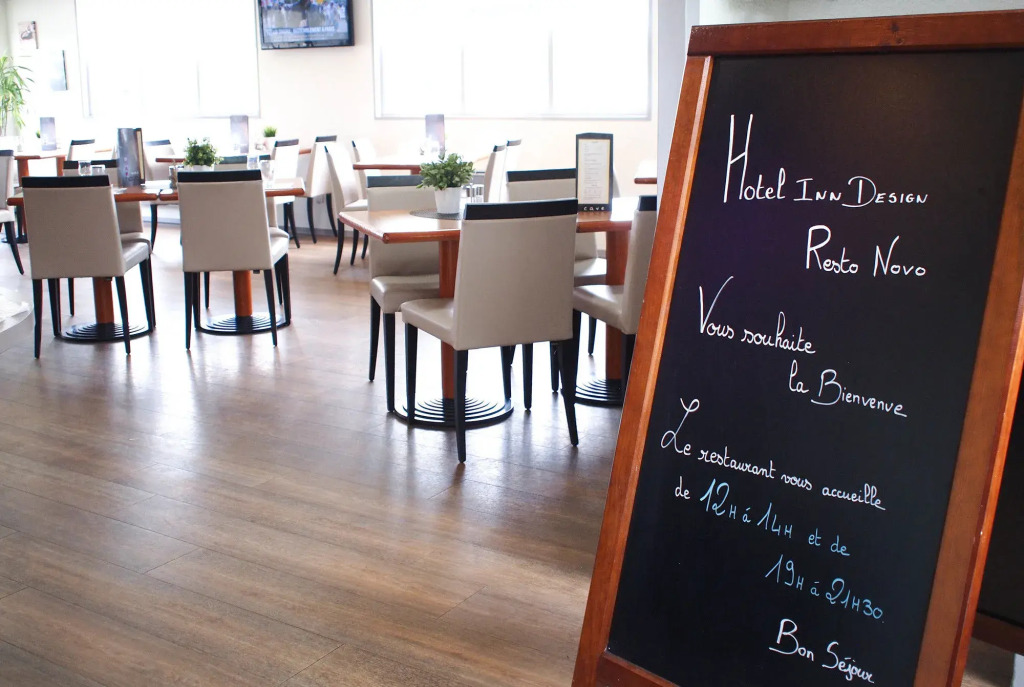 Hotel INN DESIGN
Resto Novo
Vous souhaite
la Bienvenue
Le restaurant vous accueille
de 12H à 14H et de
19H à 21H30.
Bon Séjour
CAVE